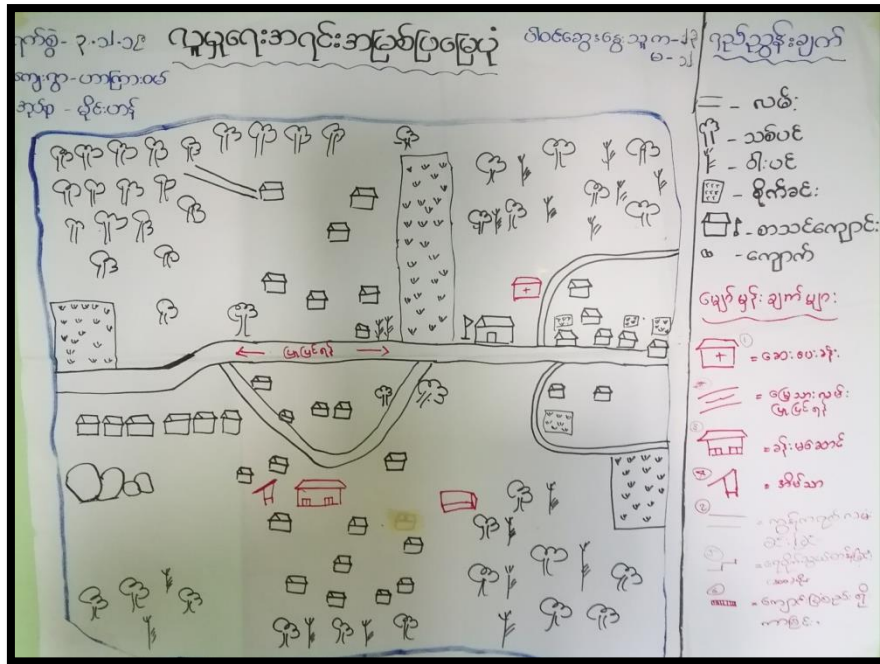 ရက်စွဲ - ၃.၁၂.၁၉
လူမှုရေးအရင်းအမြစ်ပြမြေပုံ
ပါဝင်ဆွေးနွေးသူ ကျ-၂၃
မ - ၁၂
ကျေးရွာ - ဟာကြားဝမ်
အုပ်စု - မိုင်းဟန်
ရည်ညွှန်းချက်
- လမ်း
- သစ်ပင်
- ဝါးပင်
- စိုက်ခင်း
- စာသင်ကျောင်း
- ကျောက်
မျှော်မှန်းချက်များ
① = ဆေးပေးခန်း
= မြေသားလမ်း
ပြုပြင်ရန်
= ခန်းမဆောင်
= အိမ်သာ
②
ပြုပြင်ရန်